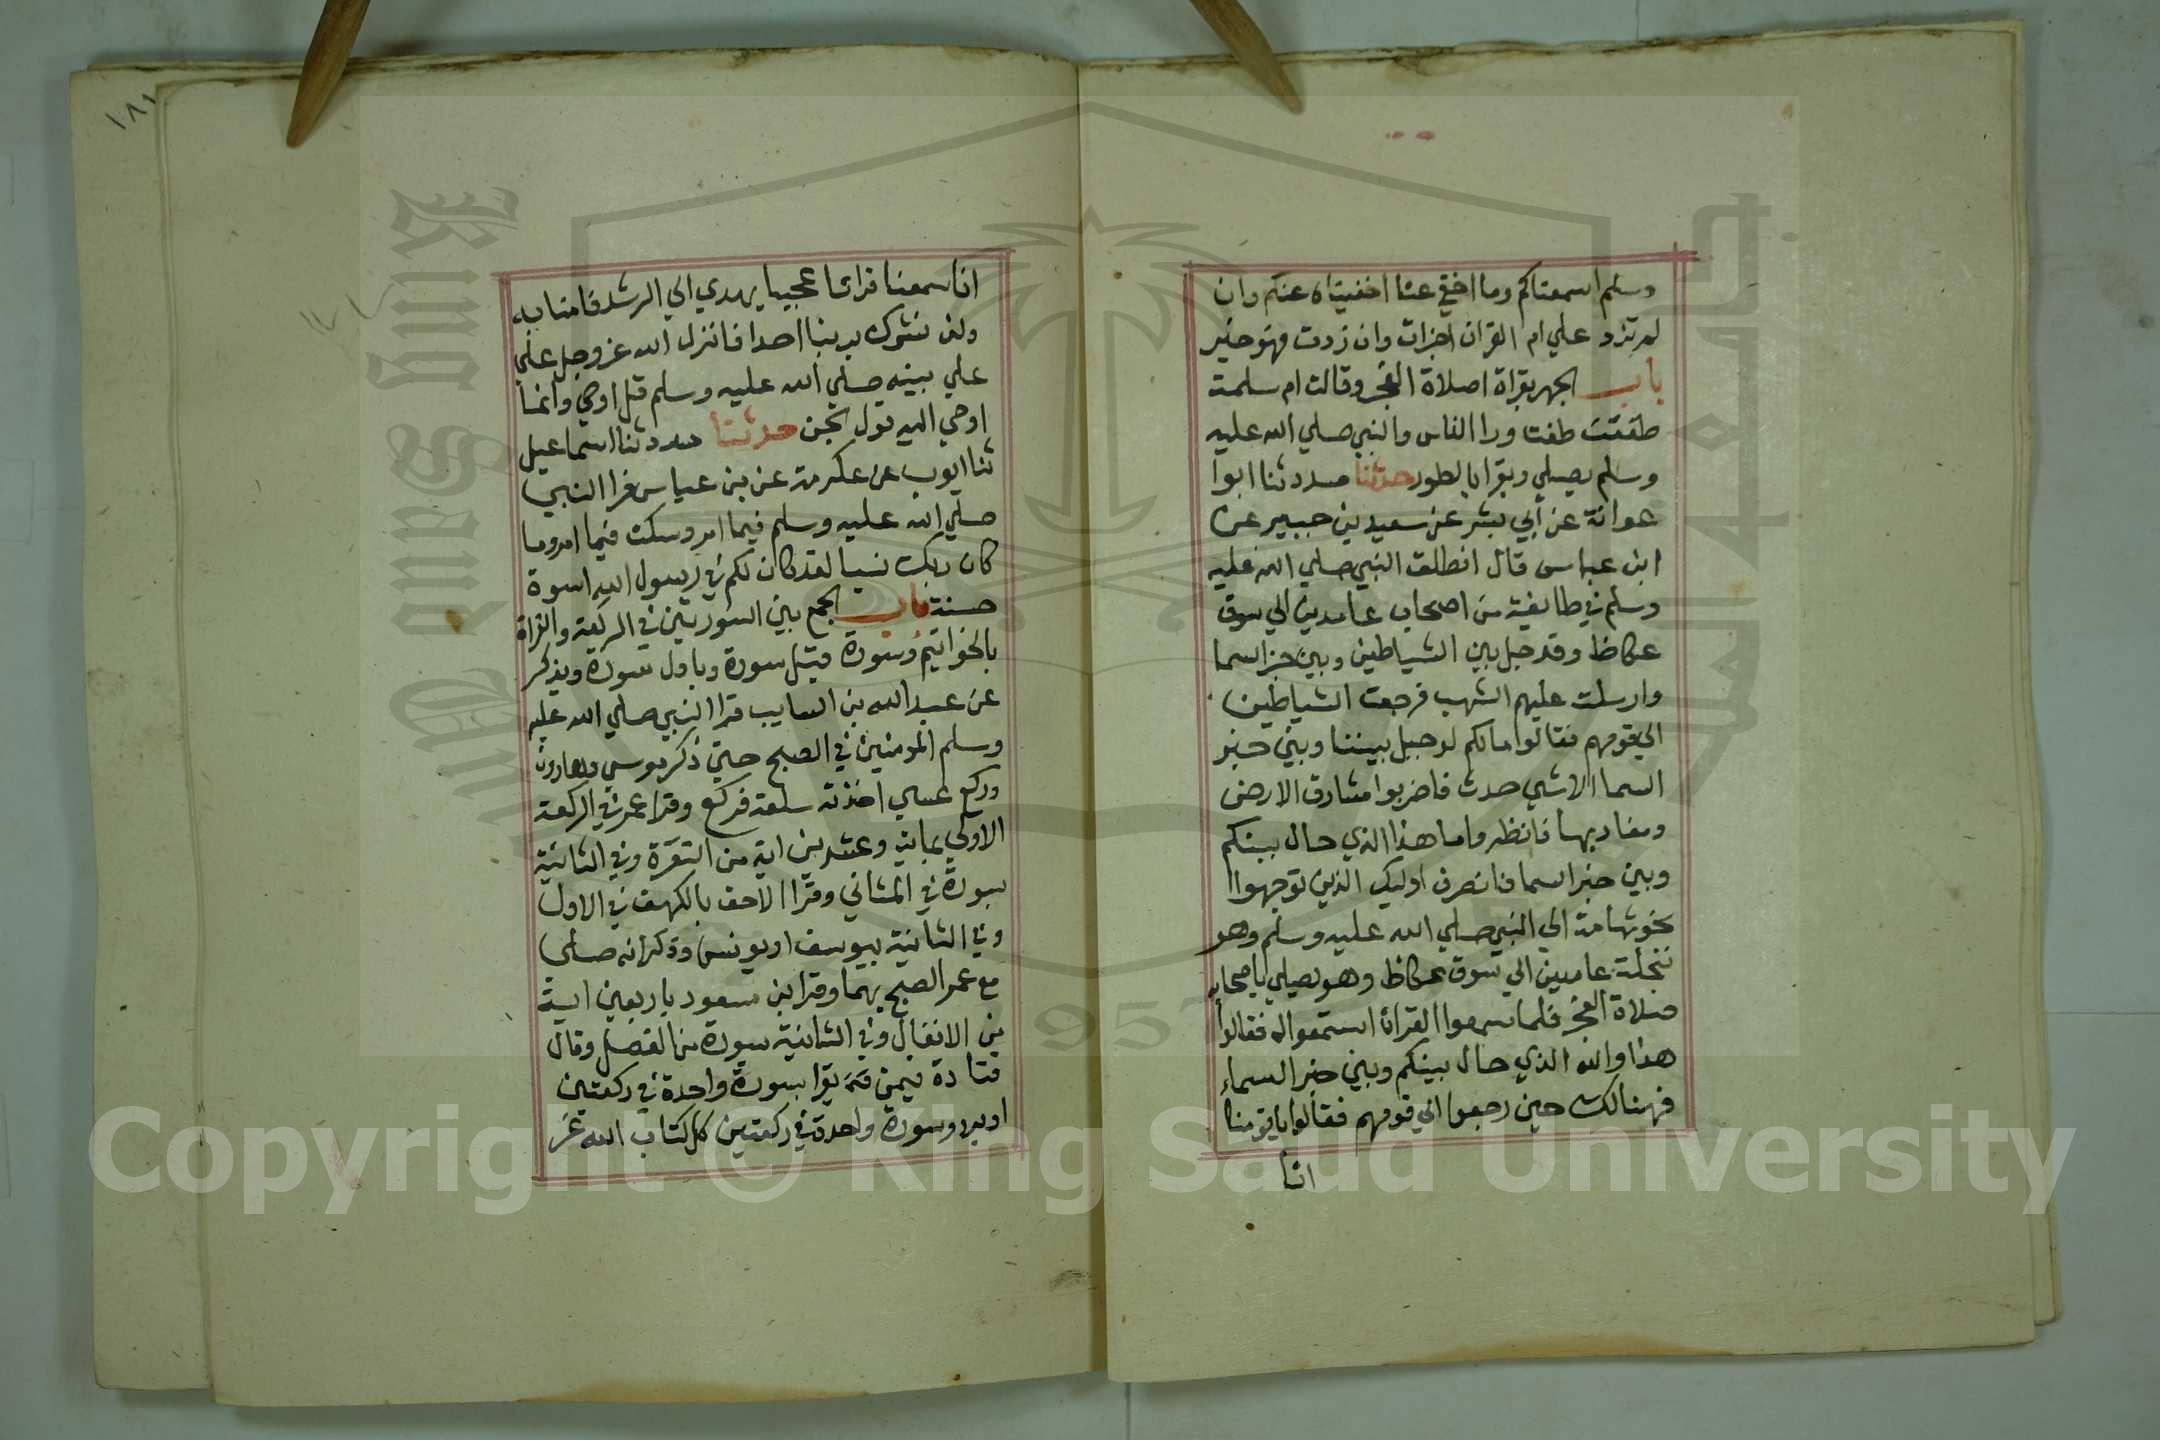 وسلم اسمعناكم وما اخفي عنا اخفيناه عنكم وان
لم تزد علي ام القران اجزات وان زدت فهو خير
باب الجهر بقراة صلاة الفجر وقالت ام سلمت
طفت ورا الناس والنبي صلي الله عليه
وسلم يصلي ويقرا بالطور حدثنا مسدد ثنا ابوا
عوانة عن ابي بشر عن سعيد بن جبير عن
ابن عباس قال انطلق النبي صلي الله عليه
وسلم في طايفة من اصحاب عامدين الي سوق
عكاظ وقد حيل بين الشياطين وبين خبر السما
وارسلت عليهم الشهب فرجعت الشياطين
الي قومهم فقالوا مالكم لو حيل بيننا وبين خبر
السما الا شي حدث فاضربوا مشارق الارض
ومغاربها فانظروا ما هذا الذي حال بينكم
وبين خبر السما فانصرف اوليك الذين توجهوا
نحو تهامة الي النبي صلي الله عليه وسلم وهو
بنخلة عامدين الي سوق عكاظ وهو يصلي باصحابه
صلاة الفجر فلما سمعوا القران استمعوا له فقالوا
هذا والله الذي حال بينكم وبين خبر السماء
فهنالك حين رجعوا الي قومهم فقالوا يا قومنا
انا
١٨١
انا سمعنا قرانا عجيبا يهدي الي الرشد فامنا به
ولن نشرك بربنا احدا فانزل الله عز وجل علي
علي نبيه صلي الله عليه وسلم قل اوحي وانما
اوحي اليه قول الجن حدثنا مسدد ثنا اسماعيل
ثنا ايوب عن عكرمة عن بن عباس قرا النبي
صلي الله عليه وسلم فيما امر وسكت فيما امر وما
كان ربك نسيا لقد كان لكم في رسول الله اسوة
حسنة باب الجمع بين السورتين في الركعة والقراة
بالخواتيم وسورة قبل سورة وباول سورة ويذكر
عن عبد الله بن السايب قرا النبي صلي الله عليه
وسلم المومنين في الصبح حتي ذكر موسي وهارون
وركع عيسي اخذته سلعة فركع وقرا عمر في الركعة
الاولي بماية وعشرين اية من البقرة وفي الثانية
بسورة في المثاني وقرا الاحف بالكهف في الاول
وفي الثانية بيوسف او يونس وذكر انه صلي
مع عمر الصبح بهما وقرا بن مسعود باربعين اية
من الانفال وفي الثانية بسورة من المفصل وقال
قتادة فيمن يقرا بسورة واحدة في ركعتين
او يردد سورة واحدة في ركعتين كل كتاب الله عز
King Saud University
1957
Copyright © King Saud University